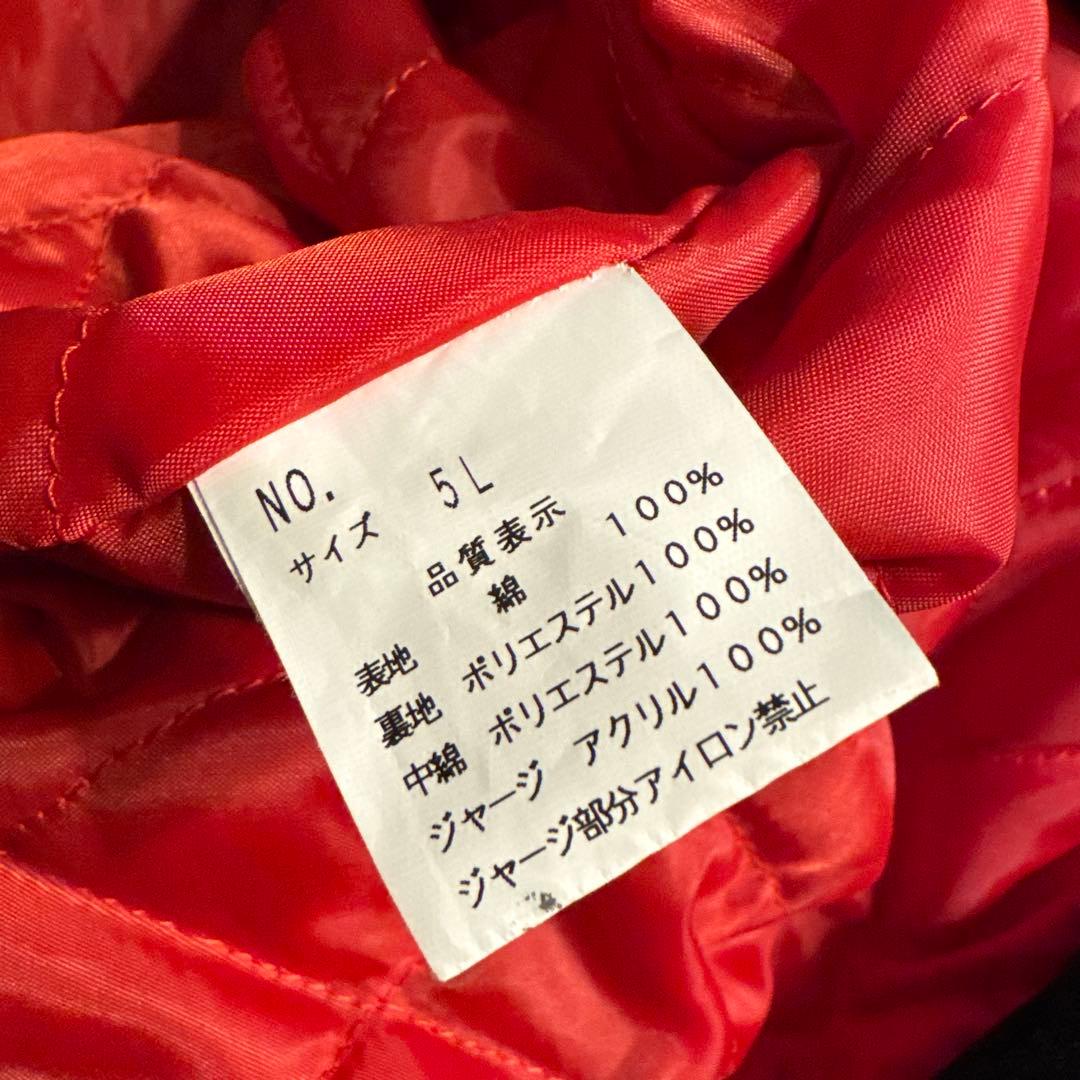 NO.
サイズ 5L
品質表示
表地 綿 100%
裏地 ポリエステル100%
中綿 ポリエステル100%
ジャージ アクリル100%
ジャージ部分アイロン禁止